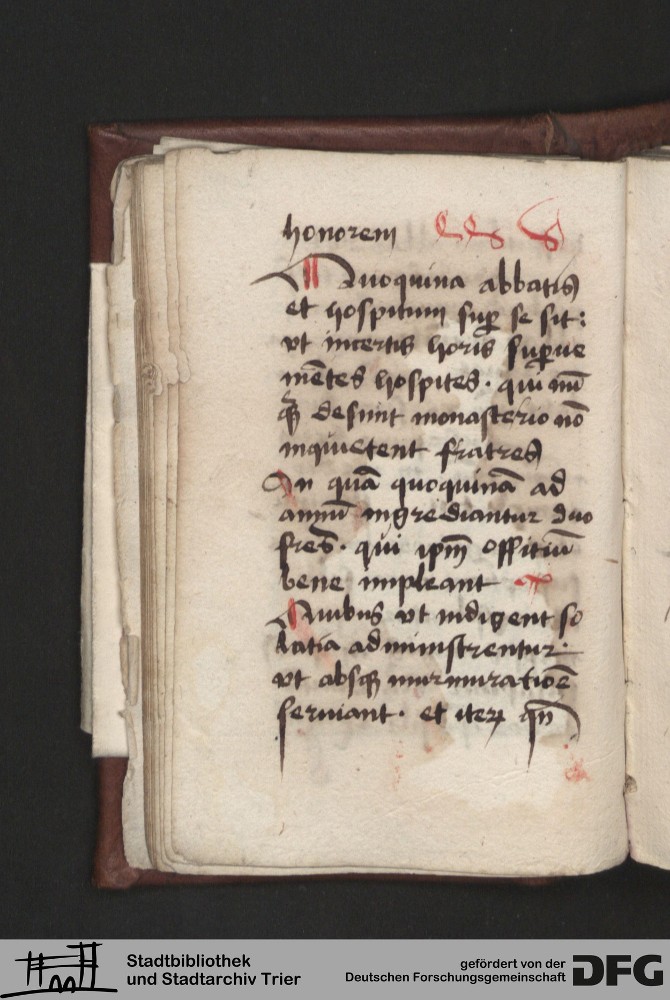 honorem
Quoquina abbatis
et hospitum sup̱ se sit:
vt incertis horis sup̱ue
niētes hospites. qui nū
q̄ȝ desunt monasterio nō
inquietent fratres
In quā quoquinā ad
annū ingrediantur duo
fres̄. qui ip̄m officiū
bene impleant
Quibus vt indigent so
latia administrentur.
vt absqȝ murmuratiōē
seruiant. et iteꝝ qn̄
Stadtbibliothek
und Stadtarchiv Trier
gefördert von der
Deutschen Forschungsgemeinschaft
DFG